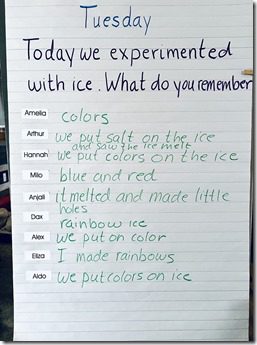 Tuesday
Today we experimented
with ice. What do you remember
Amelia colors
Arthur we put salt on the ice
and saw the ice melt
Hannah we put colors on the ice
Milo blue and red
Anjali it melted and made little
holes
Dax rainbow ice
Alex we put on color
Eliza I made rainbows
Aldo we put colors on ice